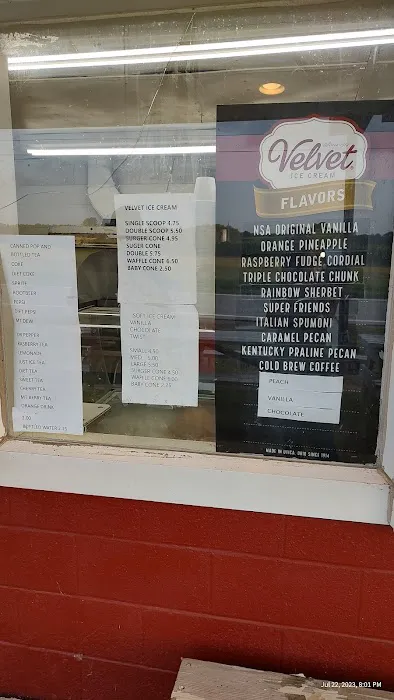 CANNED POP AND
BOTTLED TEA
COKE
DIET COKE
SPRITE
ROOTBEER
PEPSI
DIET PEPSI
MT DEW
DR PEPPER
RASBERRY TEA
LEMONADE
JUST ICE TEA
DIET TEA
SWEET TEA
ORANGE DRINK
2.00
BOTTLED WATER 1.75
VELVET ICE CREAM
SINGLE SCOOP 4.75
DOUBLE SCOOP 5.50
BURGER CONE 4.95
SUGER CONE
DOUBLE 5.75
WAFFLE CONE 6.50
BABY CONE 2.50
SOFT ICE CREAM
VANILLA
CHOCOLATE
TWIST
SMALL
MED
LARGE
BURGER CONE
WAFFLE CONE
BABY CONE
Velvet
ICE CREAM
FLAVORS
NSA ORIGINAL VANILLA
ORANGE PINEAPPLE
RASPBERRY FUDGE CORDIAL
TRIPLE CHOCOLATE CHUNK
RAINBOW SHERBET
SUPER FRIENDS
ITALIAN SPUMONI
CARAMEL PECAN
KENTUCKY PRALINE PECAN
COLD BREW COFFEE
PEACH
VANILLA
CHOCOLATE
MADE IN UTICA, OHIO SINCE 1914
Jul 22, 2023, 8:01 PM